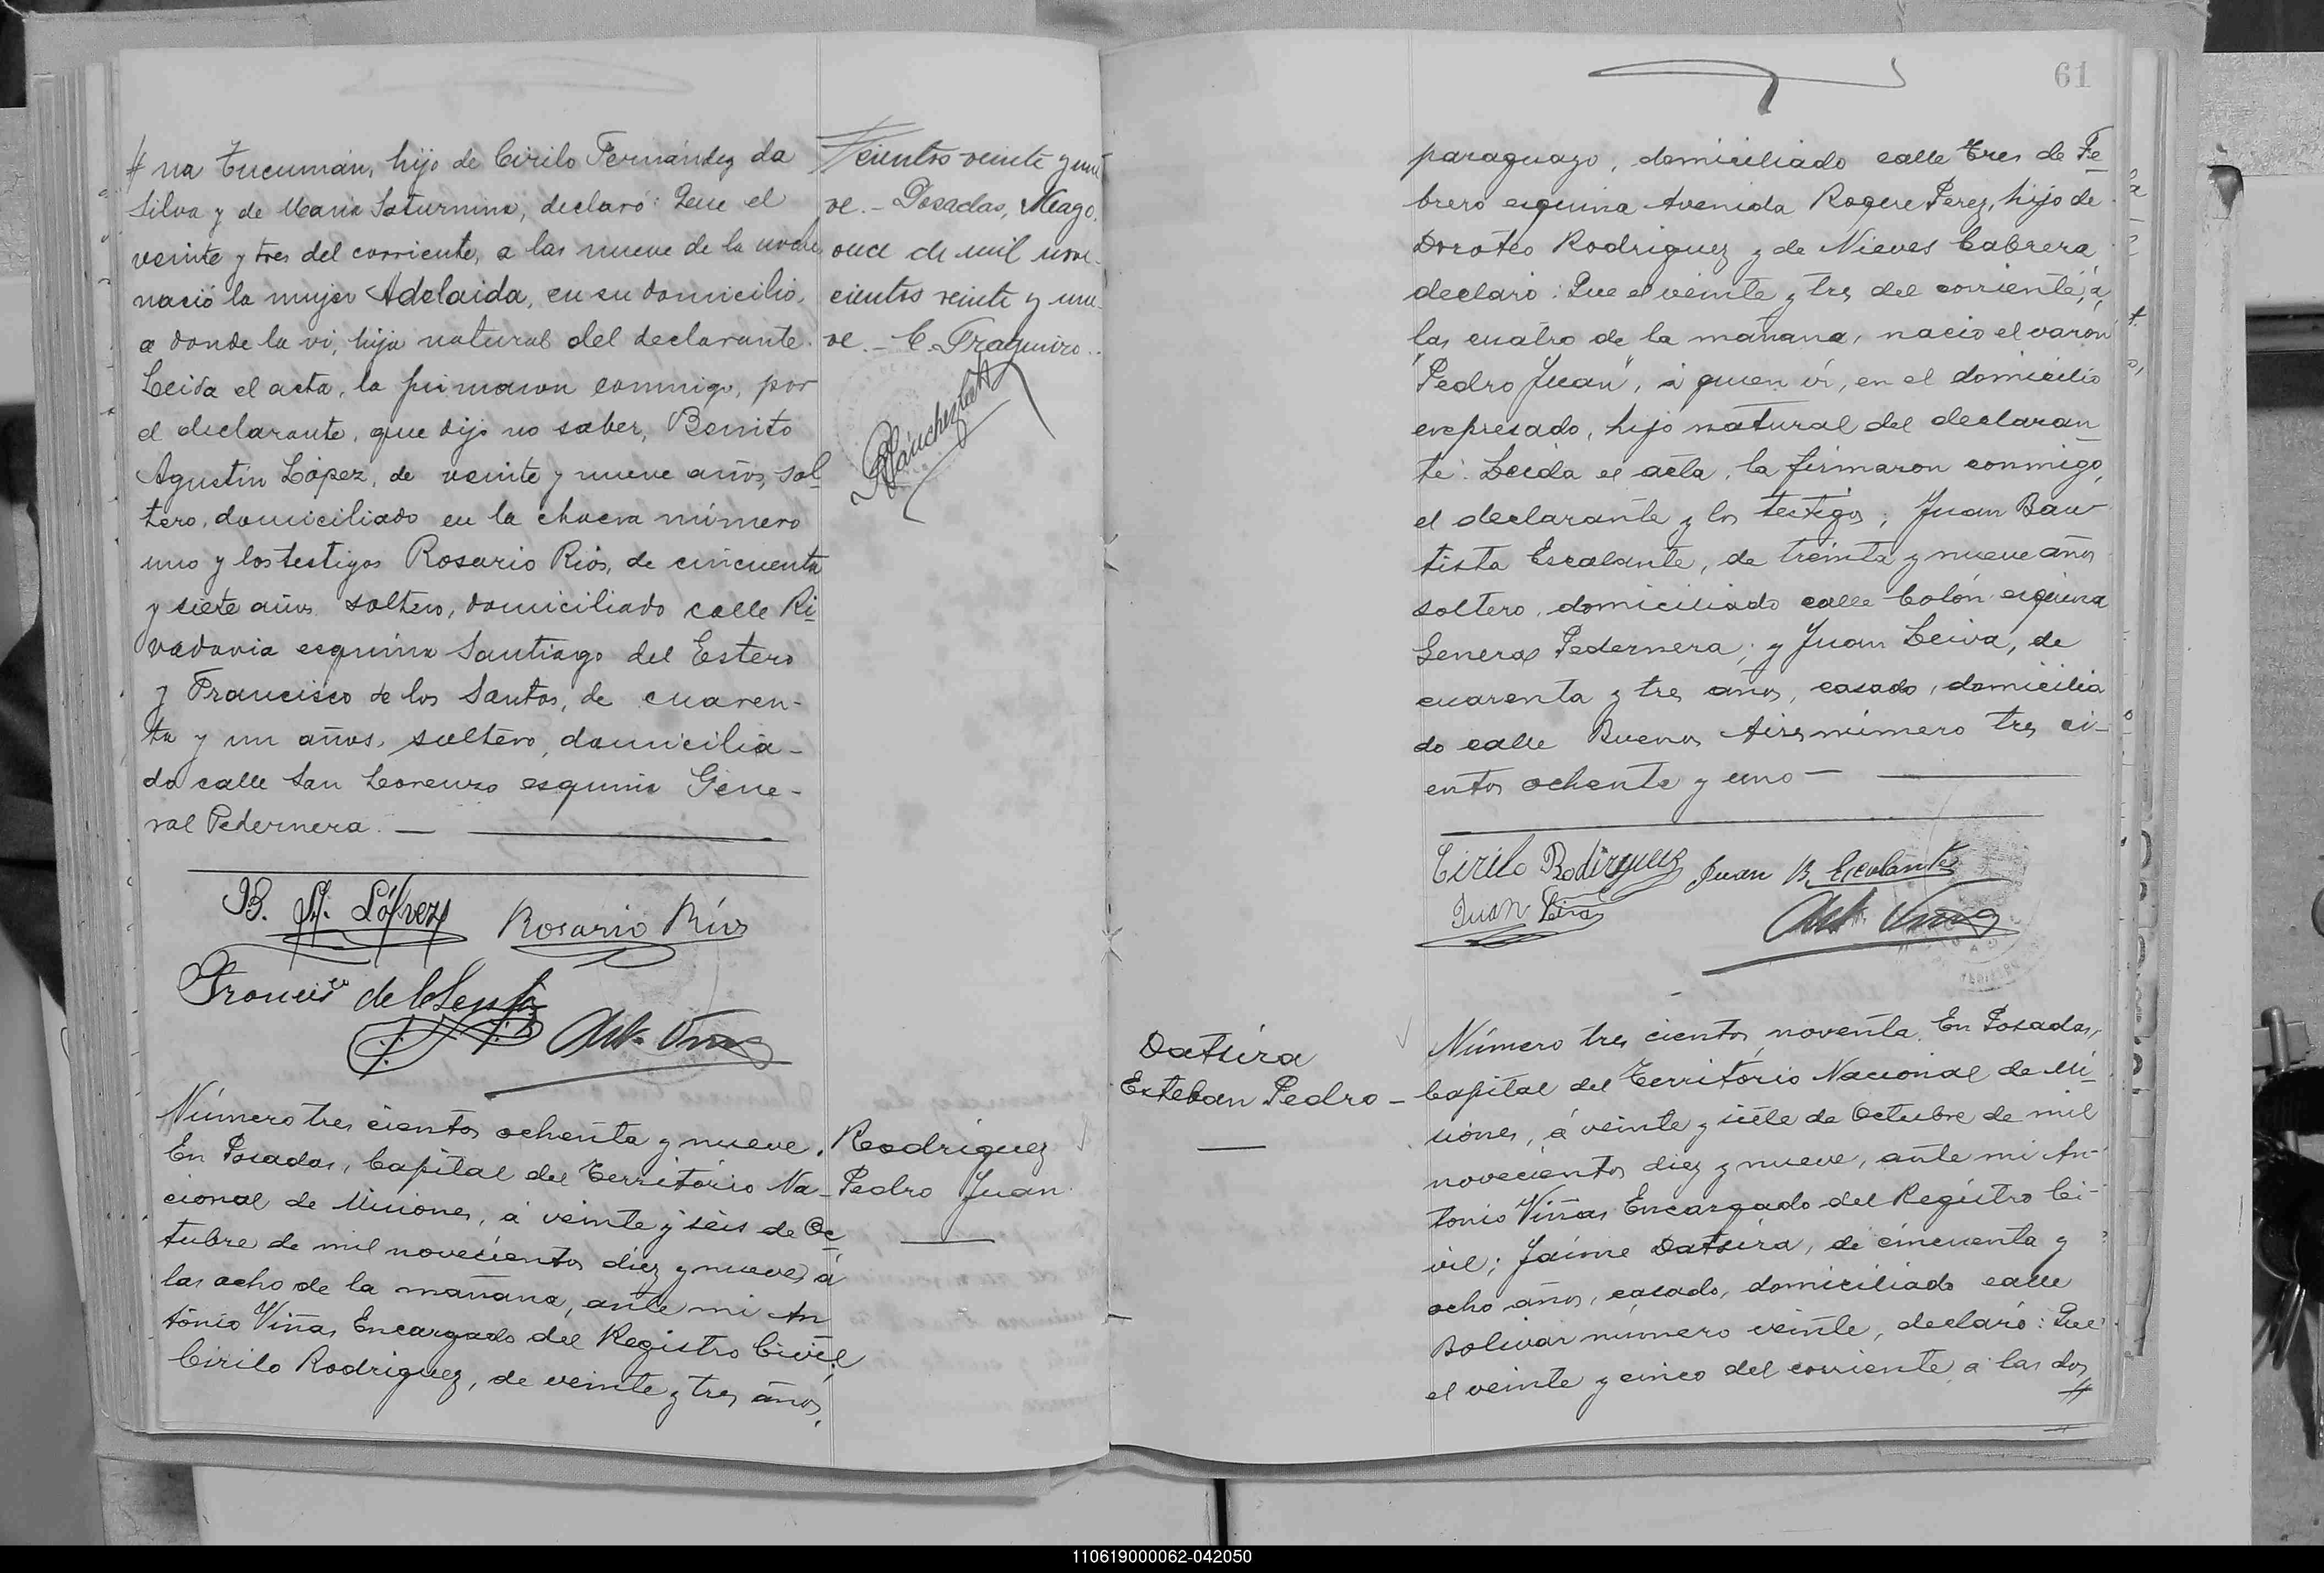 # na Tucumán, hijo de Cirilo Fernández da
Silva y de Maria Saturnina, declaró: Que el
veinte y tres del corriente, a las nueve de la noche,
nació la mujer Adelaida, en su domicilio,
a donde la vi, hija natural del declarante.
Leida el acta, la firmaron conmigo, por
el declarante, que dijo no saber, Benito
Agustin López, de veinte y nueve años, sol-
tero, domiciliado en la chacra número
uno y los testigos Rosario Rios, de cincuenta
y siete años soltero, domiciliado calle Ri-
vadavia esquina Santiago del Estero
y Francisco de los Santos, de cuaren-
ta y un años, soltero, domicilia-
do calle San Lorenzo esquina Gene-
ral Pedernera. —
B. A. López Rosario Rios
Francisco de los Santos
Ant. Viñas
# cientos veinte y nue
ve. - Posadas, Mayo
once de mil nove-
cientos veinte y nue-
ve. -
Número tres cientos ochenta y nueve.
En Posadas, Capital del Territorio Na-
cional de Misiones, á veinte y seis de Oc-
tubre de mil novecientos diez y nueve á
las ocho de la mañana, ante mi An
tonio Viñas Encargado del Registro Civil,
Cirilo Rodriguez, de veinte y tres años,
Rodriguez
Pedro Juan
61
paraguayo, domiciliado calle Tres de Fe-
brero esquina Avenida Roque Perez, hijo de
Doroteo Rodriguez y de Nieves Cabrera
declaró: Que el veinte y tres del corriente, á
las cuatro de la mañana, nacio el varon
"Pedro Juan", á quien vi, en el domicilio
expresado, hijo natural del declaran
te. Leida el acta, la firmaron conmigo,
el declarante y los testigos; Juan Bau-
tista Escalante, de treinta y nueve años
soltero, domiciliado calle Colón esquina
General Pedernera; y Juan Leiva, de
cuarenta y tres años, casado, domicilia
do calle Buenos Aires número tres ci-
entos ochenta y uno —
Cirilo Rodirguez Juan B. Escalante
Juan Leiva
Ant. Viñas
Datsira
Esteban Pedro —
Número tres cientos noventa. En Posadas,
Capital del Territorio Nacional de Mi-
siones, á veinte y siete de Octubre de mil
novecientos diez y nueve, ante mi An-
tonio Viñas Encargado del Registro Ci-
vil; Jaime Datsira, de cincuenta y
ocho años, casado, domiciliado calle
Bolivar número veinte, declaró: Que
el veinte y cinco del corriente á las dos
#
110619000062-042050